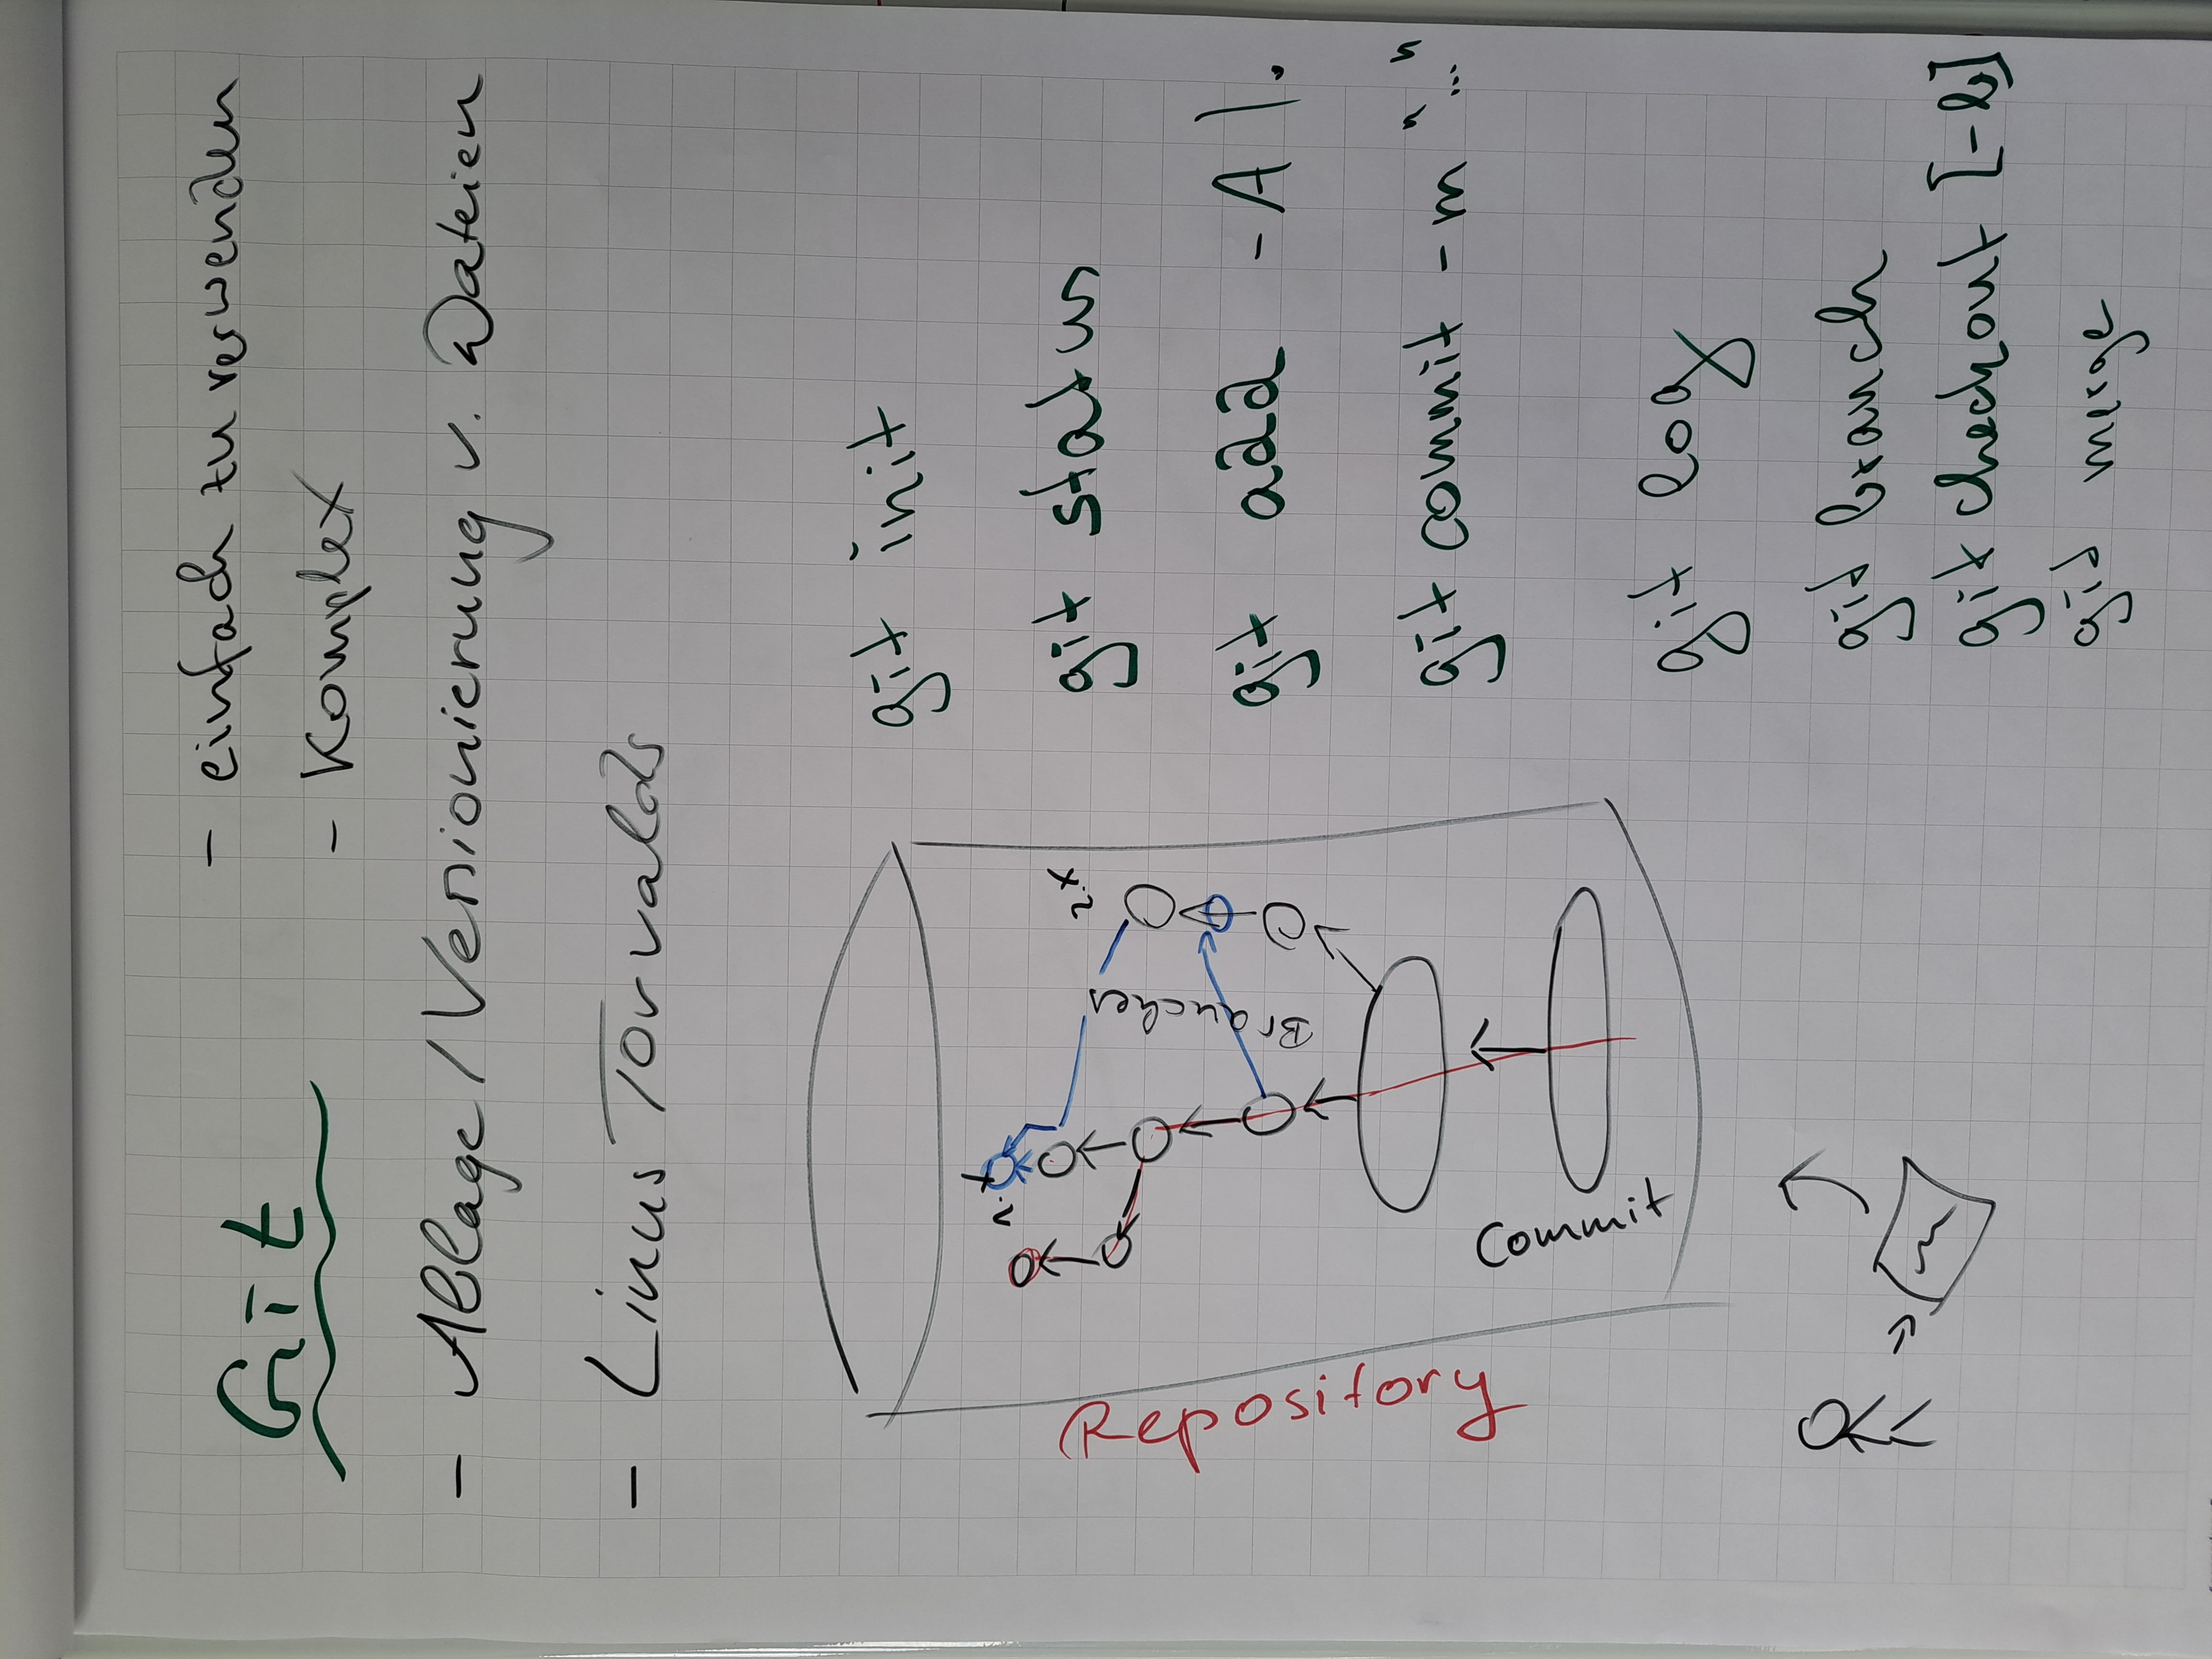 Git
- einfach zu verwenden
- Komplex
- Ablage / Versionierung v. Dateien
- Linus Torvalds
Repository
2.x
Branches
Commit
git init
git status
git add -A | .
git commit -m "..."
git log
git branch
git checkout [-b]
git merge